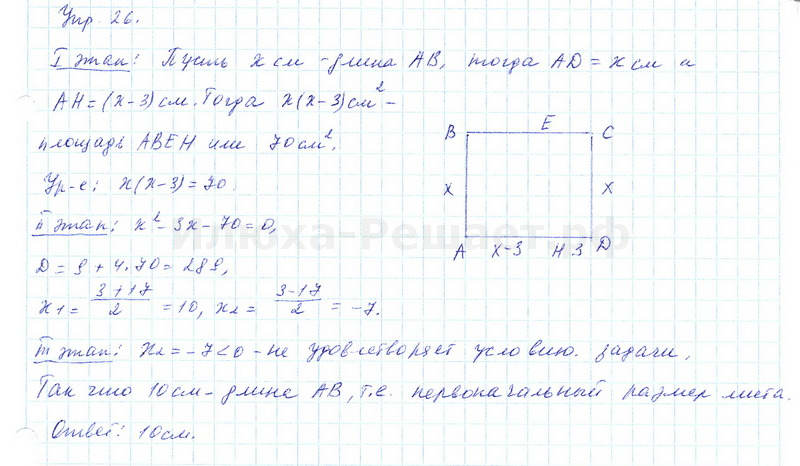 Упр. 26.
I этап: Пусть x см - длина AB, тогда AD = x см и
AH = (x-3) см. Тогда x(x-3) см² -
площадь ABEH или 70 см².
Ур-е: x(x-3) = 70.
II этап: x² - 3x - 70 = 0,
D = 9 + 4·70 = 289,
x1 = (3+17)/2 = 10, x2 = (3-17)/2 = -7.
III этап: x2 = -7 < 0 - не удовлетворяет условию задачи,
Так что 10 см - длина AB, т.е. первоначальный размер листа.
Ответ: 10 см.
B E C
X X
A X-3 H 3 D
Илюха-Решает.рф